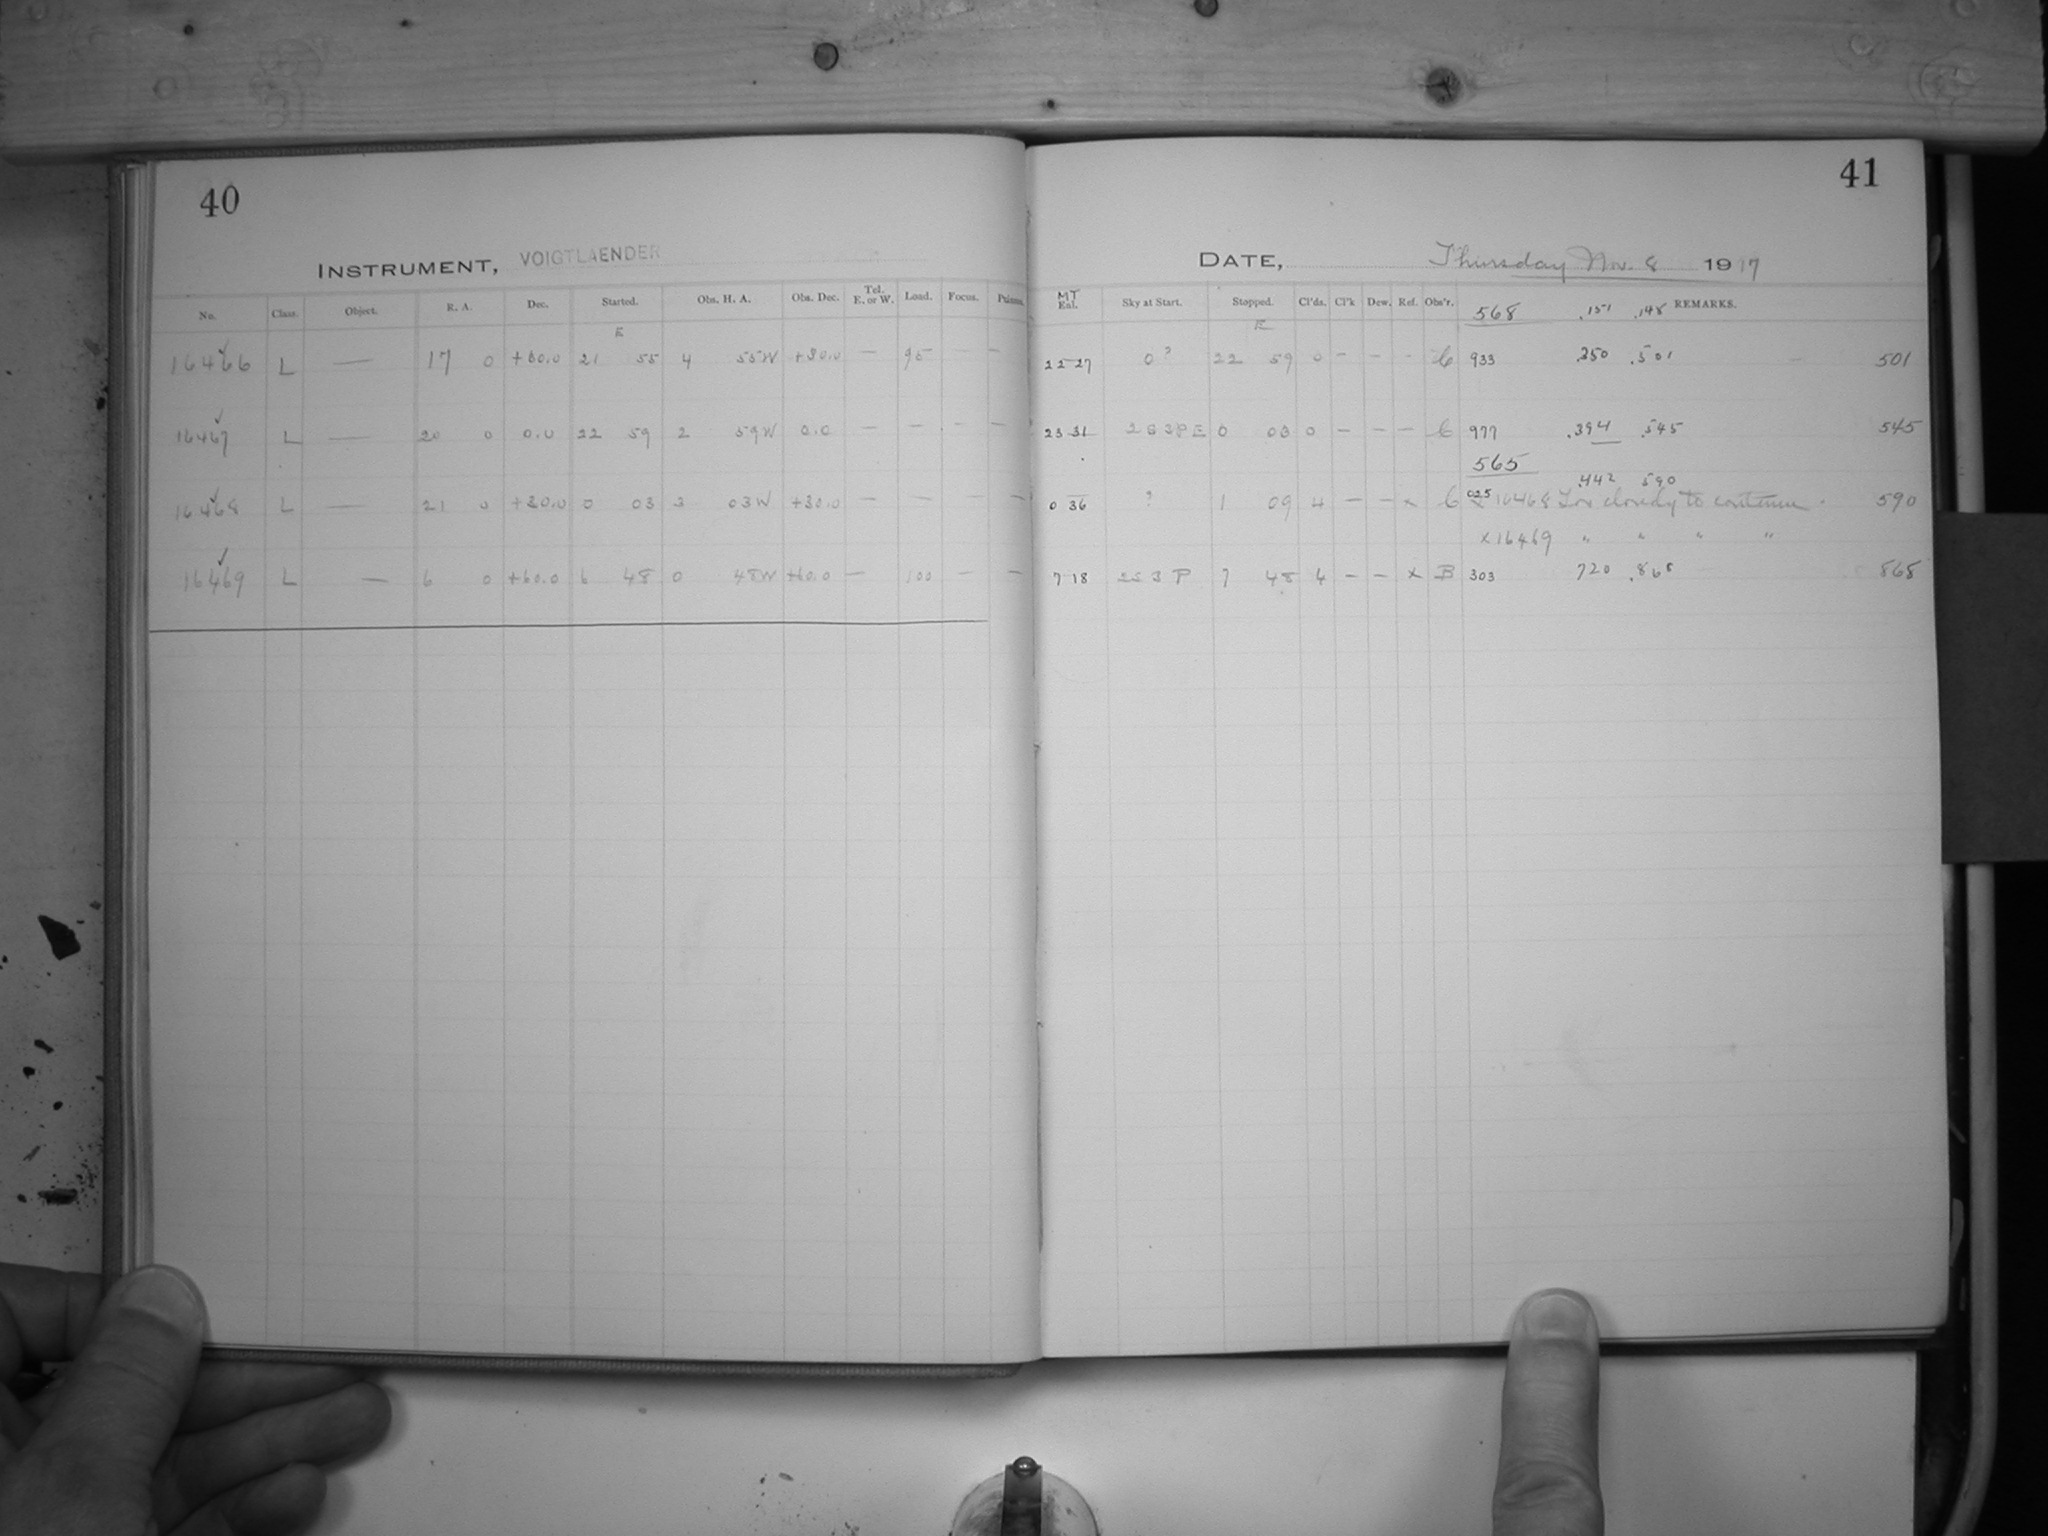 40
INSTRUMENT, VOIGTLAENDER
No. Class. Object. R. A. Dec. Started. Obs. H. A. Obs. Dec. Tel. E. or W. Load. Focus.
E
16466 L — 17 0 +30.0 21 55 4 55W +30.0 — 95 — —
16467 L — 20 0 0.0 22 59 2 59W 0.0 — — — —
16468 L — 21 0 +30.0 0 03 3 03W +30.0 — — — —
16469 L — 6 0 +60.0 6 48 0 48W +60.0 — 100 — —
41
DATE, Thursday Nov. 8 1917
MT Enl. Sky at Start. Stopped. Cl'ds. Cl'k Dew. Ref. Obs'r. 568 .151 .148 REMARKS.
E
22 27 0? 22 59 0 — — - C 933 .350 .501 — 501
23 31 2S3PE 0 03 0 — — — C 977 .394 .545 545
565
.442 590
0 36 ? 1 09 4 — — x C 025 x 16468 Too cloudy to continue. 590
x 16469 " " " "
7 18 2S3P 7 48 4 — — x B 303 720 .868 868